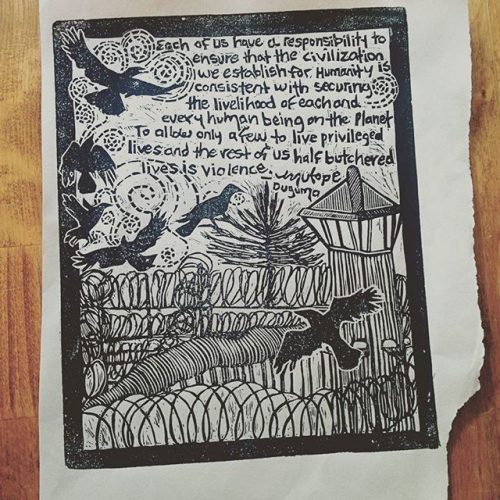 Each of us have a responsibility to
ensure that the civilization
we establish for Humanity is
consistent with securing
the livelihood of each and
every human being on the Planet
To allow only a few to live privileged
lives and the rest of us half butchered
lives. Is violence. Jngutope
Duguma